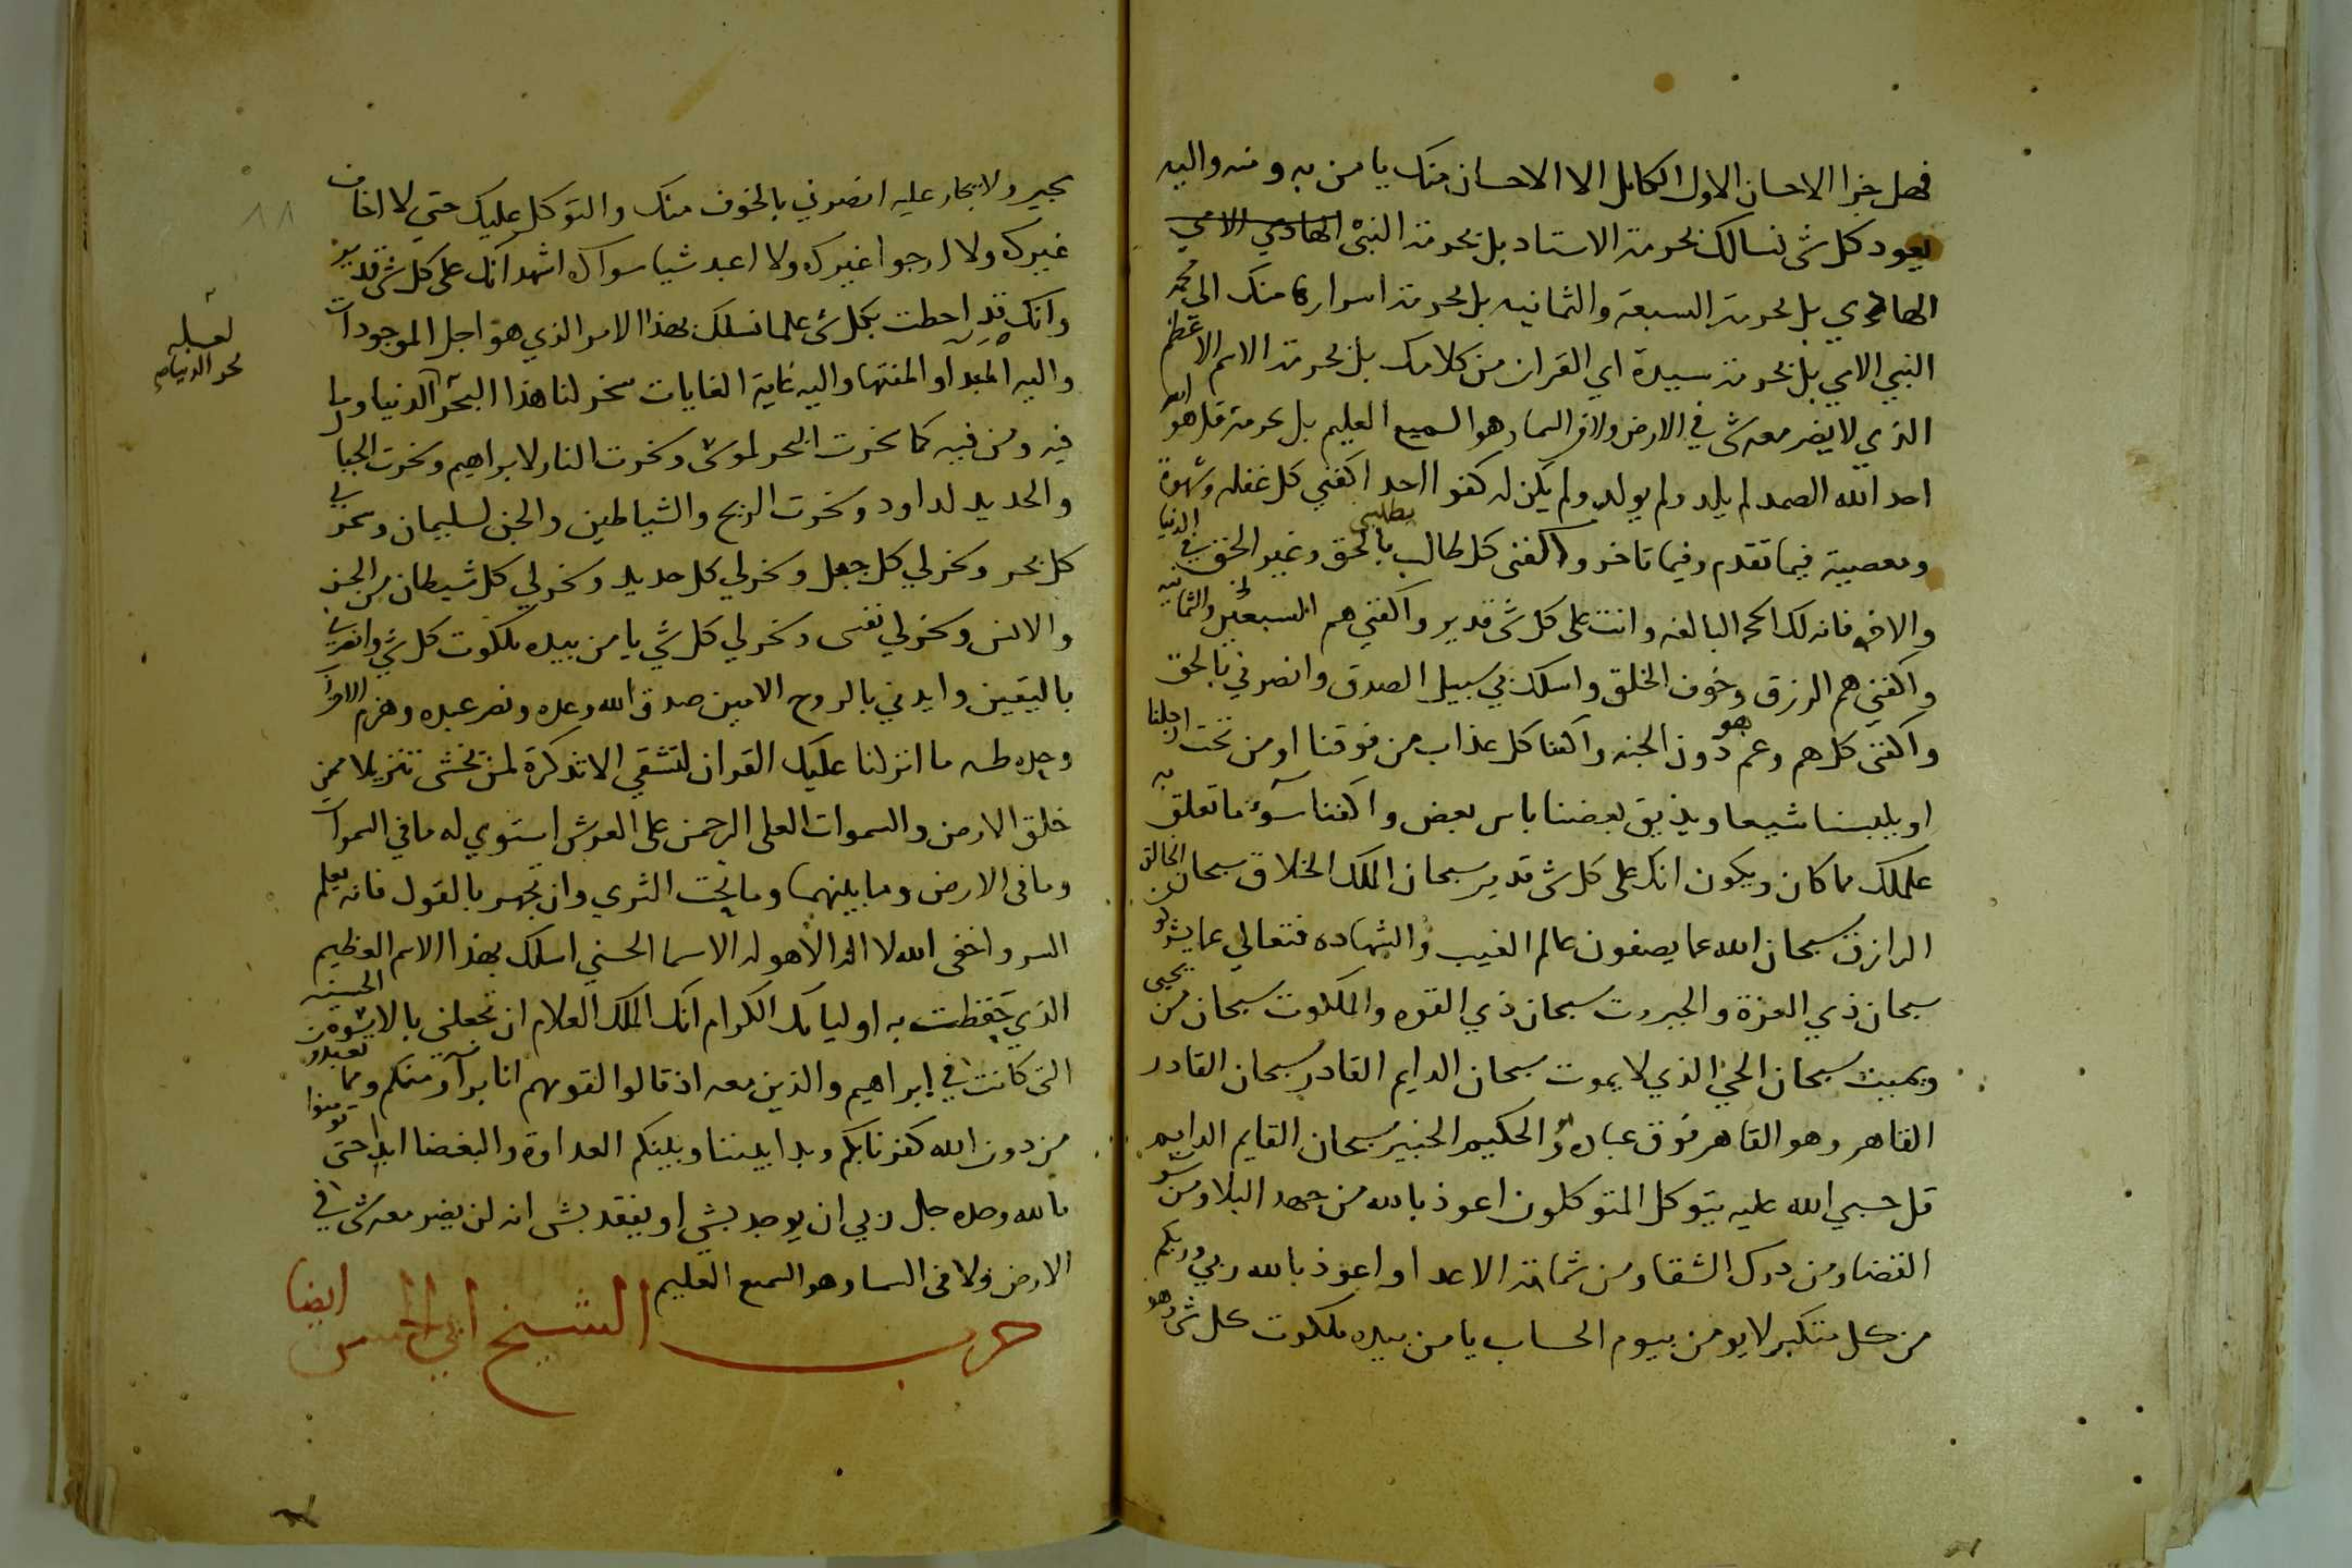 فهل جزا الاحسان الاول الكامل الا الاحسان منك يا من به ومنه واليه
يعود كل شى نسالك بحرمة الاستاد بل بحرمة النبى الهادي الامي
الهادي بل بحرمة السبعة والثمانيه بل بحرمة اسرارها منك الى محمد
النبي الامي بل بحرمة سيدة اي القران من كلامك بل بحرمة الاسم الاعظم
الذي لا يضر معه شى في الارض ولا في السما وهو السميع العليم بل بحرمة قل هو الله
احد الله الصمد لم يلد ولم يولد ولم يكن له كفوا احد اكفني كل غفله وشهوة
ومعصيه فيما تقدم وفيما تاخر واكفنى كل طالب يطلبني بالحق وغير الحق في الدنيا
والاخره فانه لك الحجه البالغه وانت على كل شى قدير واكفني هم السبعين والثمانيه
واكفني هم الرزق وخوف الخلق واسلك بي سبيل الصدق وانصرني بالحق
واكفنى كل هم وغم هو دون الجنه واكفنا كل عذاب من فوقنا او من تحت ارجلنا
او يلبسنا شيعا ويذيق بعضنا باس بعض واكفنا سوء ما تعلق به
علمك مما كان ويكون انك على كل شى قدير سبحان الملك الخلاق سبحان الخالق
الرازق سبحان الله عما يصفون عالم الغيب والشهاده فتعالي عما يشركون
سبحان ذي العزة والجبروت سبحان ذي القوه والملكوت سبحان من يحيى
ويميت سبحان الحي الذي لا يموت سبحان الدايم القادر سبحان القادر
القاهر وهو القاهر فوق عباده وهو الحكيم الخبير سبحان القايم الدايم
قل حسبي الله عليه يتوكل المتوكلون اعوذ بالله من جهد البلا ومن سو
القضا ومن درك الشقا ومن شماتة الاعدا واعوذ بالله ربي وربكم
من كل متكبر لا يومن بيوم الحساب يا من بيده ملكوت كل شى وهو
يجير ولا يجار عليه انصرني بالخوف منك والتوكل عليك حتي لا اخاف
غيرك ولا ارجوا غيرك ولا اعبد شيا سواك اشهد انك على كل شى قدير
وانك قد احطت بكل شى علما نسلك بهذا الامر الذي هو اجل الموجودات
واليه المبدا والمنتها واليه غاية الغايات سخر لنا هذا البحر الدنيا وما
فيه ومن فيه كما سخرت البحر لموسى وسخرت النار لابراهيم وسخرت الجبال
والحديد لداود وسخرت الريح والشياطين والجن لسليمان وسخر لي
كل بحر وسخر لي كل جبل وسخر لي كل حديد وسخر لي كل شيطان من الجن
والانس وسخر لي نفسى وسخر لي كل شي يا من بيده ملكوت كل شي وانصرني
باليقين وايدني بالروح الامين صدق الله وعده ونصر عبده وهزم الاحزاب
وحده طه ما انزلنا عليك القران لتشقي الا تذكرة لمن يخشى تنزيلا ممن
خلق الارض والسموات العلى الرحمن على العرش استوي له ما في السموات
وما فى الارض وما بينهما وما تحت الثري وان تجهر بالقول فانه يعلم
السر واخفى الله لا اله الا هو له الاسما الحسني اسلك بهذا الاسم العظيم
الذي حفظت به اوليايك الكرام انك الملك العلام ان تجعلنى بالاسوة الحسنه
التى كانت في ابراهيم والذين معه اذ قالوا لقومهم انا برآؤ منكم ومما تعبدون
من دون الله كفرنا بكم وبدا بيننا وبينكم العداوة والبغضا ابدا حتى تومنوا
بالله وحده جل ربي ان يوجد بشي او يفقد بشى انه لن يضر معه شى في
الارض ولا فى السما وهو السميع العليم
حزب الشيخ ابي الحسن ايضا
لعله
بحر الدنيا
٨٨